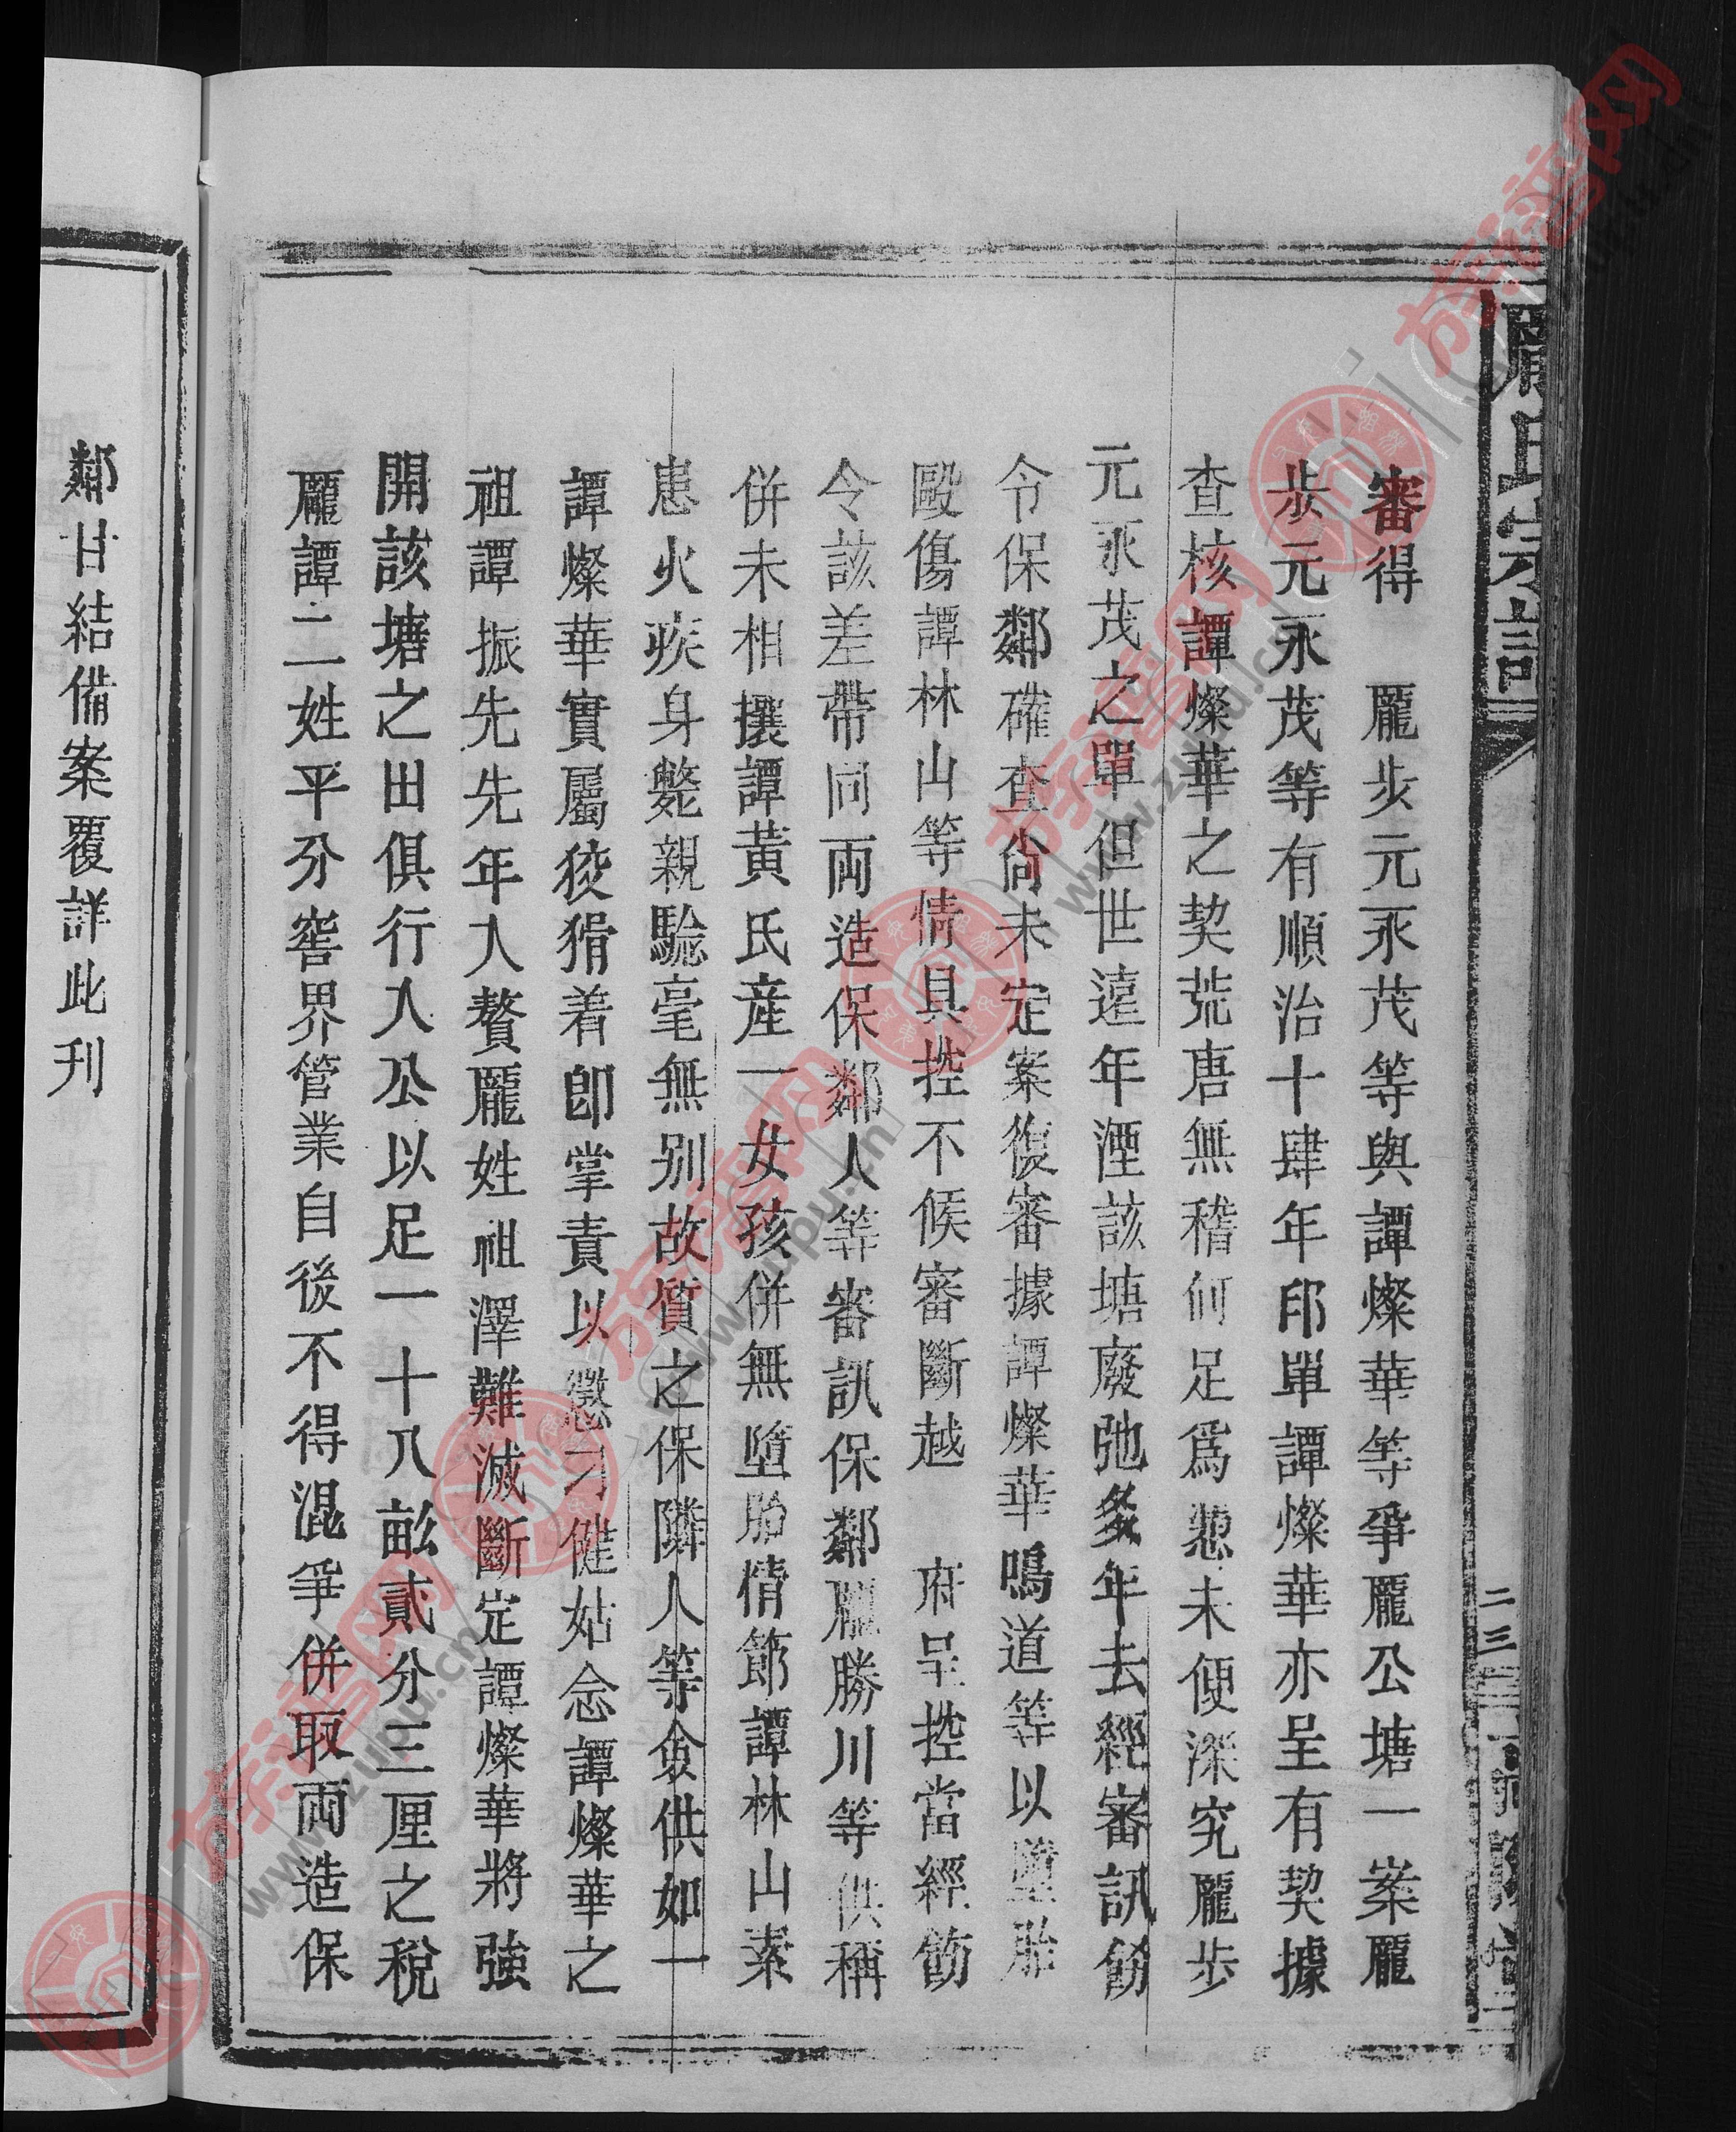 龎氏宗譜
審得　龎步元永茂等與譚燦華等爭龎公塘一案龎
步元永茂等有順治十肆年印單譚燦華亦呈有契據
查核譚燦華之契荒唐無稽何足爲慿未便深究龎步
元永茂之單但世遠年湮該塘廢弛多年去經審訊飭
令保鄰確查尚未定案復審據譚燦華鳴道等以墮胎
毆傷譚林山等情具控不候審斷越　府呈控當經飭
令該差帶同両造保鄰人等審訊保鄰龎勝川等供稱
併未相攘譚黃氏産一女孩併無墮胎情節譚林山素
患火疾身斃親騐毫無别故質之保隣人等僉供如一
譚燦華實屬狡猾着卽掌責以懲刁健姑念譚燦華之
祖譚振先先年入贅龎姓祖澤難滅斷定譚燦華將強
開該塘之田俱行入公以足一十八畝貳分三厘之稅
龎譚二姓平分窖界管業自後不得混爭併取両造保
鄰甘結備案覆詳此刊
二三
族譜网
www.zupu.cn